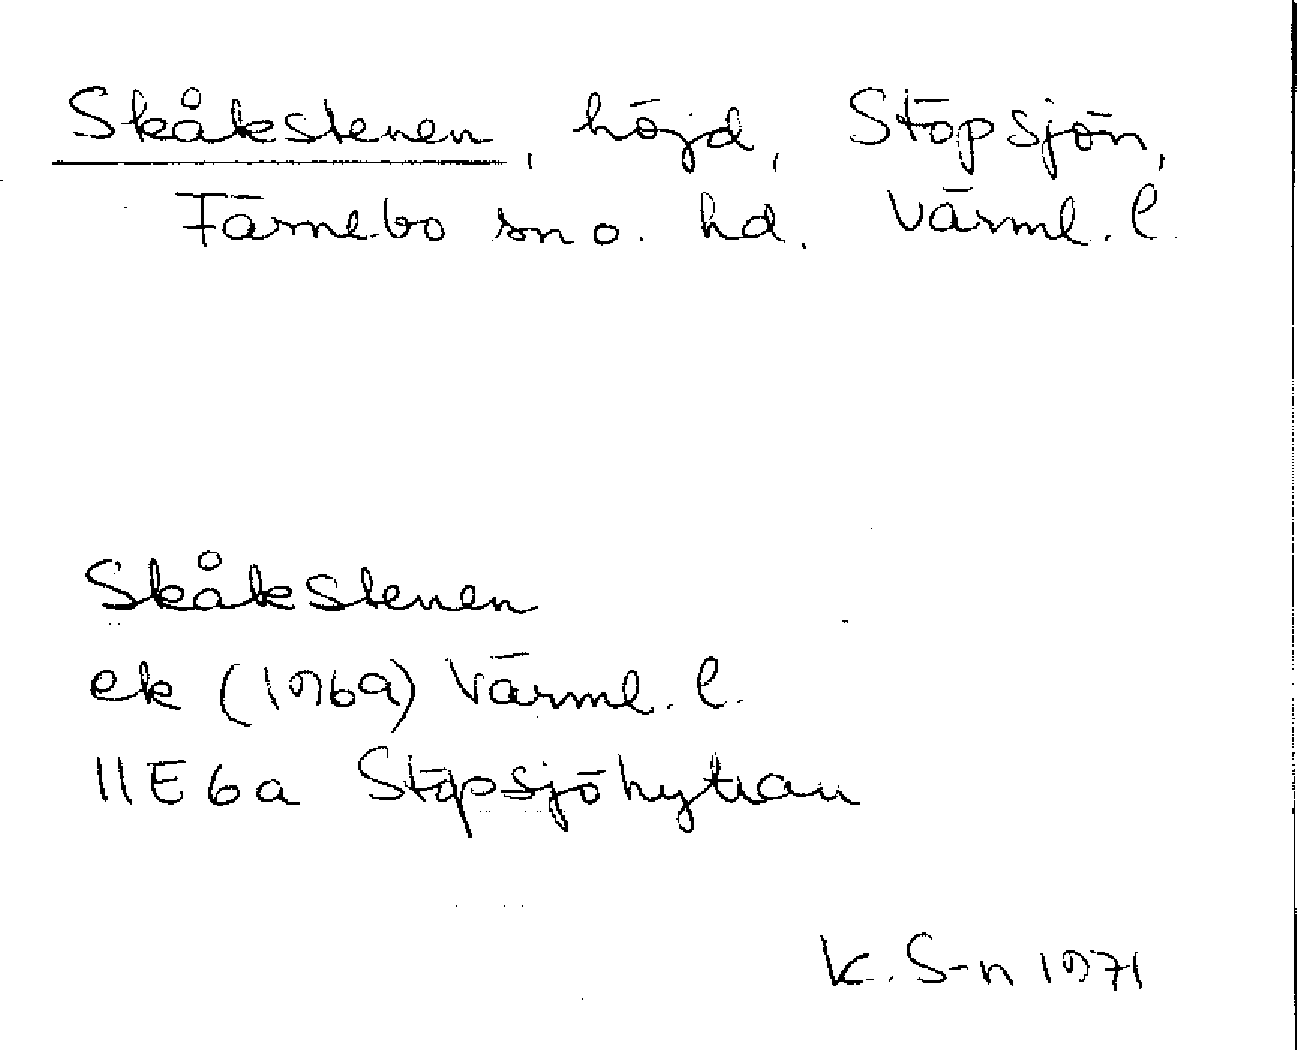 Skåkstenen, höjd, Stöpsjön,
Färnebo sn o. hd. Värml. l.
Skåkstenen
ek (1969) Värml. l.
11E6a Stöpsjöhyttan
K. S-n 1971